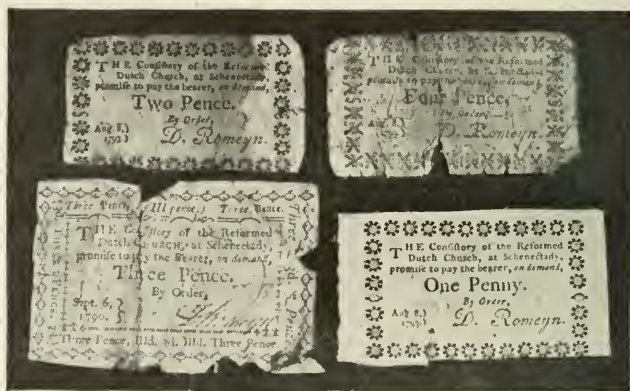 THE Consistory of the Reformed
Dutch Church, at Schenectady,
promise to pay the bearer, on demand,
Two Pence.
By Order,
Aug. 8,
1792.
D. Romeyn.
THE Consistory of the Reformed
Dutch Church, at Schenectady
promise to pay the bearer, on demand,
Four Pence.
By Order,
Aug. 8,
D. Romeyn.
Three Pence. (III pence.) Three Pence.
THE Consistory of the Reformed
Dutch CHURCH, at Schenectady,
promise to pay the Bearer, on demand,
Three Pence.
By Order,
Sept. 6,
1790.
Three Pence
Three Pence, IIId. Three Pence.
THE Consistory of the Reformed
Dutch Church, at Schenectady,
promise to pay the bearer, on demand,
One Penny.
By Order,
Aug. 8,
1792.
D. Romeyn.